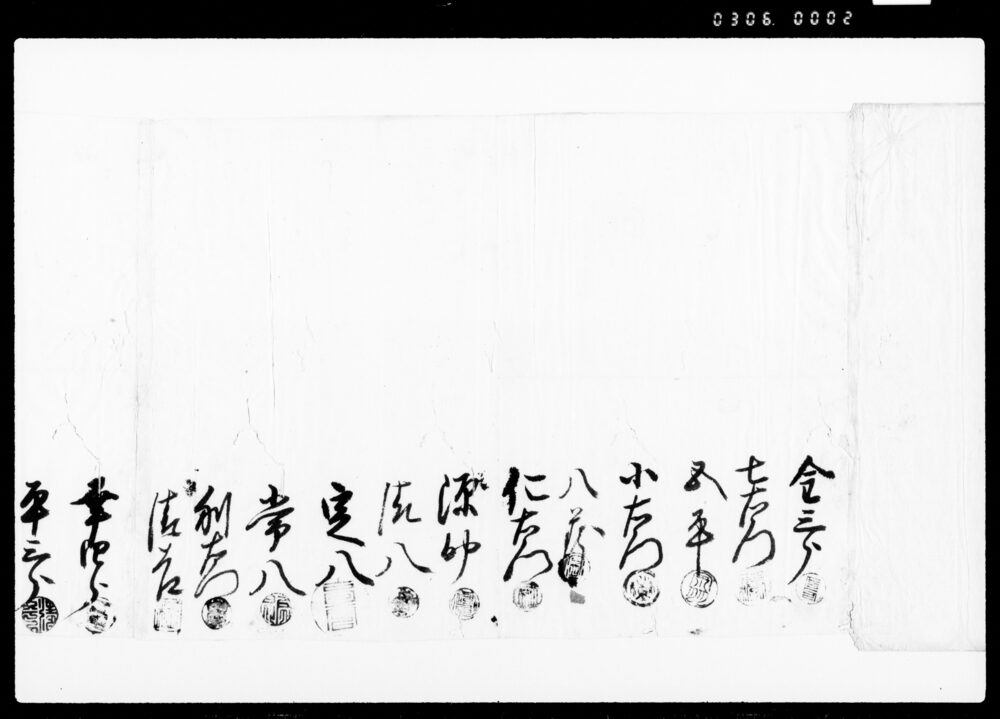 0306. 0002
金三郎
七右衛門
又平
小右衛門
八蔵
仁右衛門
源助
清八
定八
常八
利右衛門
清吉
幸四郎
平三郎